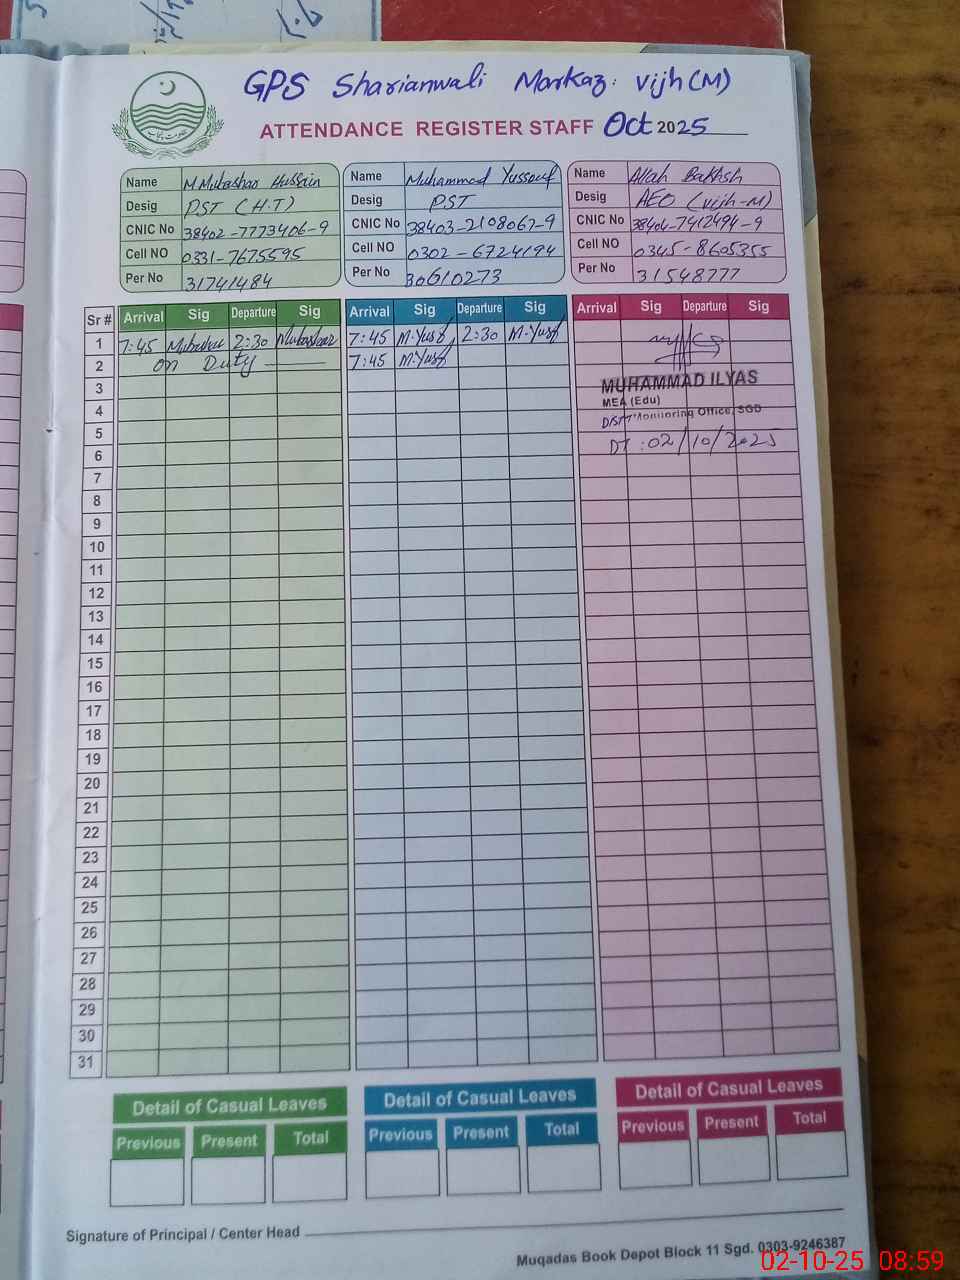 GPS Sharianwali Markaz: Vijh(M)
ATTENDANCE REGISTER STAFF Oct 2025
Name M Mubashar Hussain
Desig PST (H.T)
CNIC No 38402-7773406-9
Cell NO 0331-7675595
Per No 31741484
Name Muhammad Yussouf
Desig PST
CNIC No 38403-2108067-9
Cell NO 0302-6724194
Per No 30610273
Name Allah Bakhsh
Desig AEO (Vijh-M)
CNIC No 38404-7412494-9
Cell NO 0345-8605355
Per No 31548777
Sr # Arrival Sig Departure Sig Arrival Sig Departure Sig Arrival Sig Departure Sig
1 7:45 Mubashar 2:30 Mubashar 7:45 M.Yusf 2:30 M.Yusf
2 on Duty 7:45 M.Yusf
3 MUHAMMAD ILYAS
MEA (Edu)
4 DISTT Monitoring Office, SGD
5 DT: 02/10/2025
6
7
8
9
10
11
12
13
14
15
16
17
18
19
20
21
22
23
24
25
26
27
28
29
30
31
Detail of Casual Leaves Detail of Casual Leaves Detail of Casual Leaves
Previous Present Total Previous Present Total Previous Present Total
Signature of Principal / Center Head
Muqadas Book Depot Block 11 Sgd. 0303-9246387
02-10-25 08:59